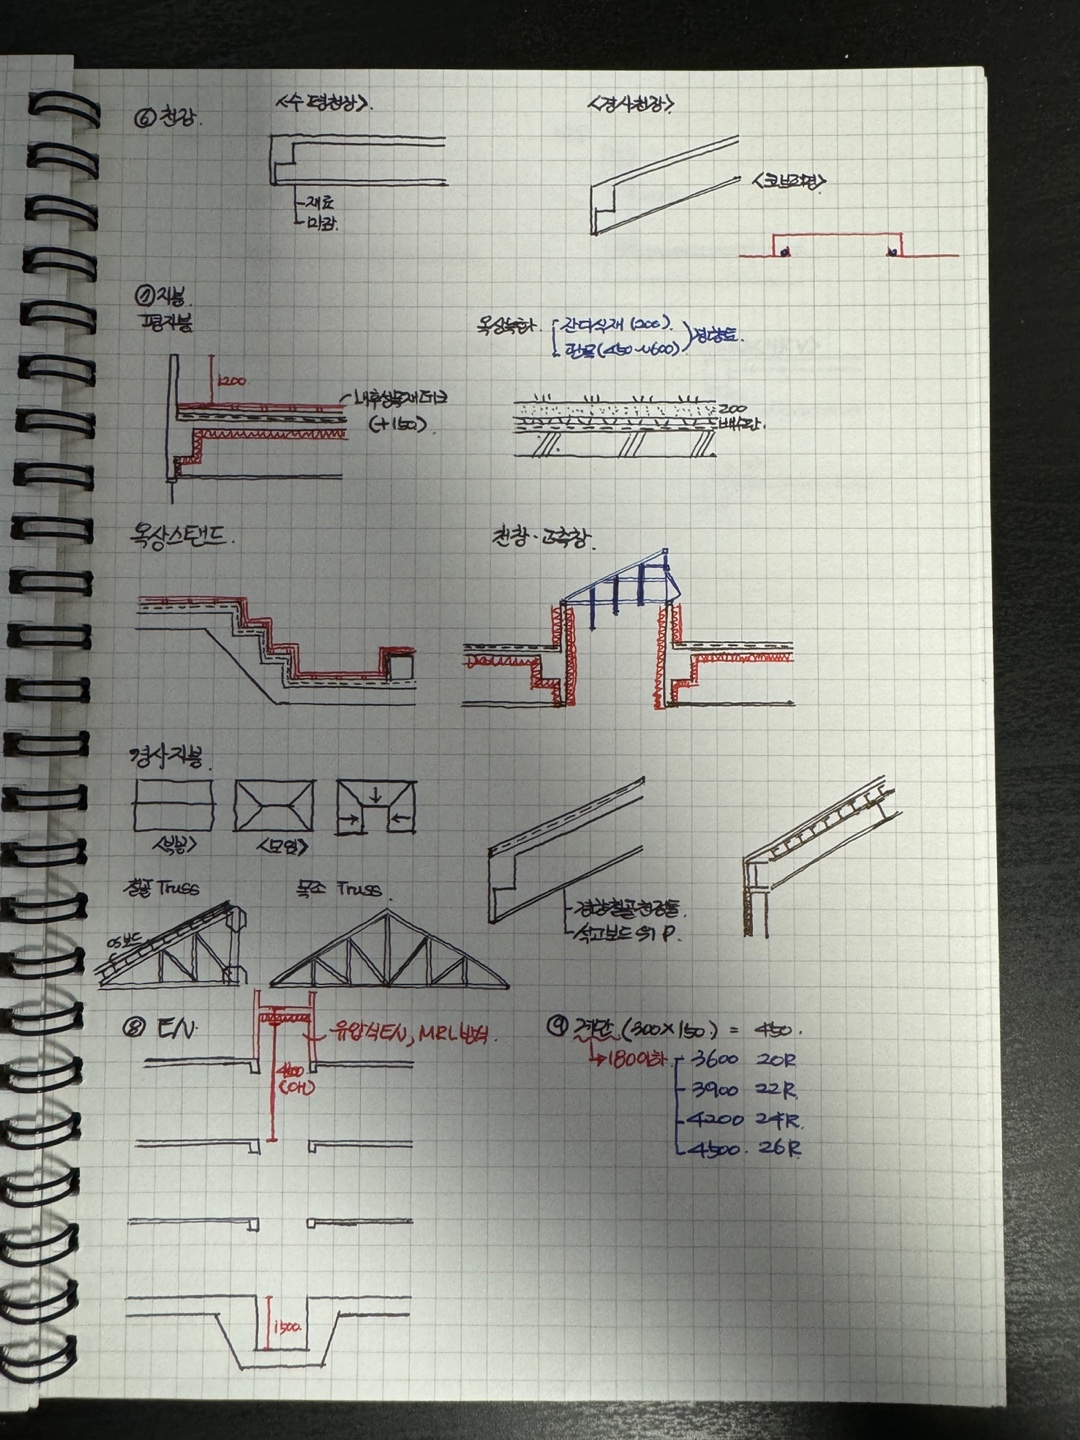 ⑥ 천장.
<수평천장>.
<경사천장>
재료
마감.
<코브조명>
⑦ 지붕.
평지붕
1200
내후성목재데크
(+150).
옥상녹화.
잔디식재 (200).
관목(450~600)
경량토.
200
배수판.
옥상스탠드.
천창·고측창.
경사지붕.
<박공>
<모임>
경량철골천정틀.
석고보드 위 P.
철골 Truss
목조 Truss
OS보드
⑧ E/V.
유압식E/V, MRL방식.
4600
(OH)
1500
⑨ 계단. (300×150.) = 450.
→1800이하.
3600 20R
3900 22R.
4200 24R.
4500. 26R.